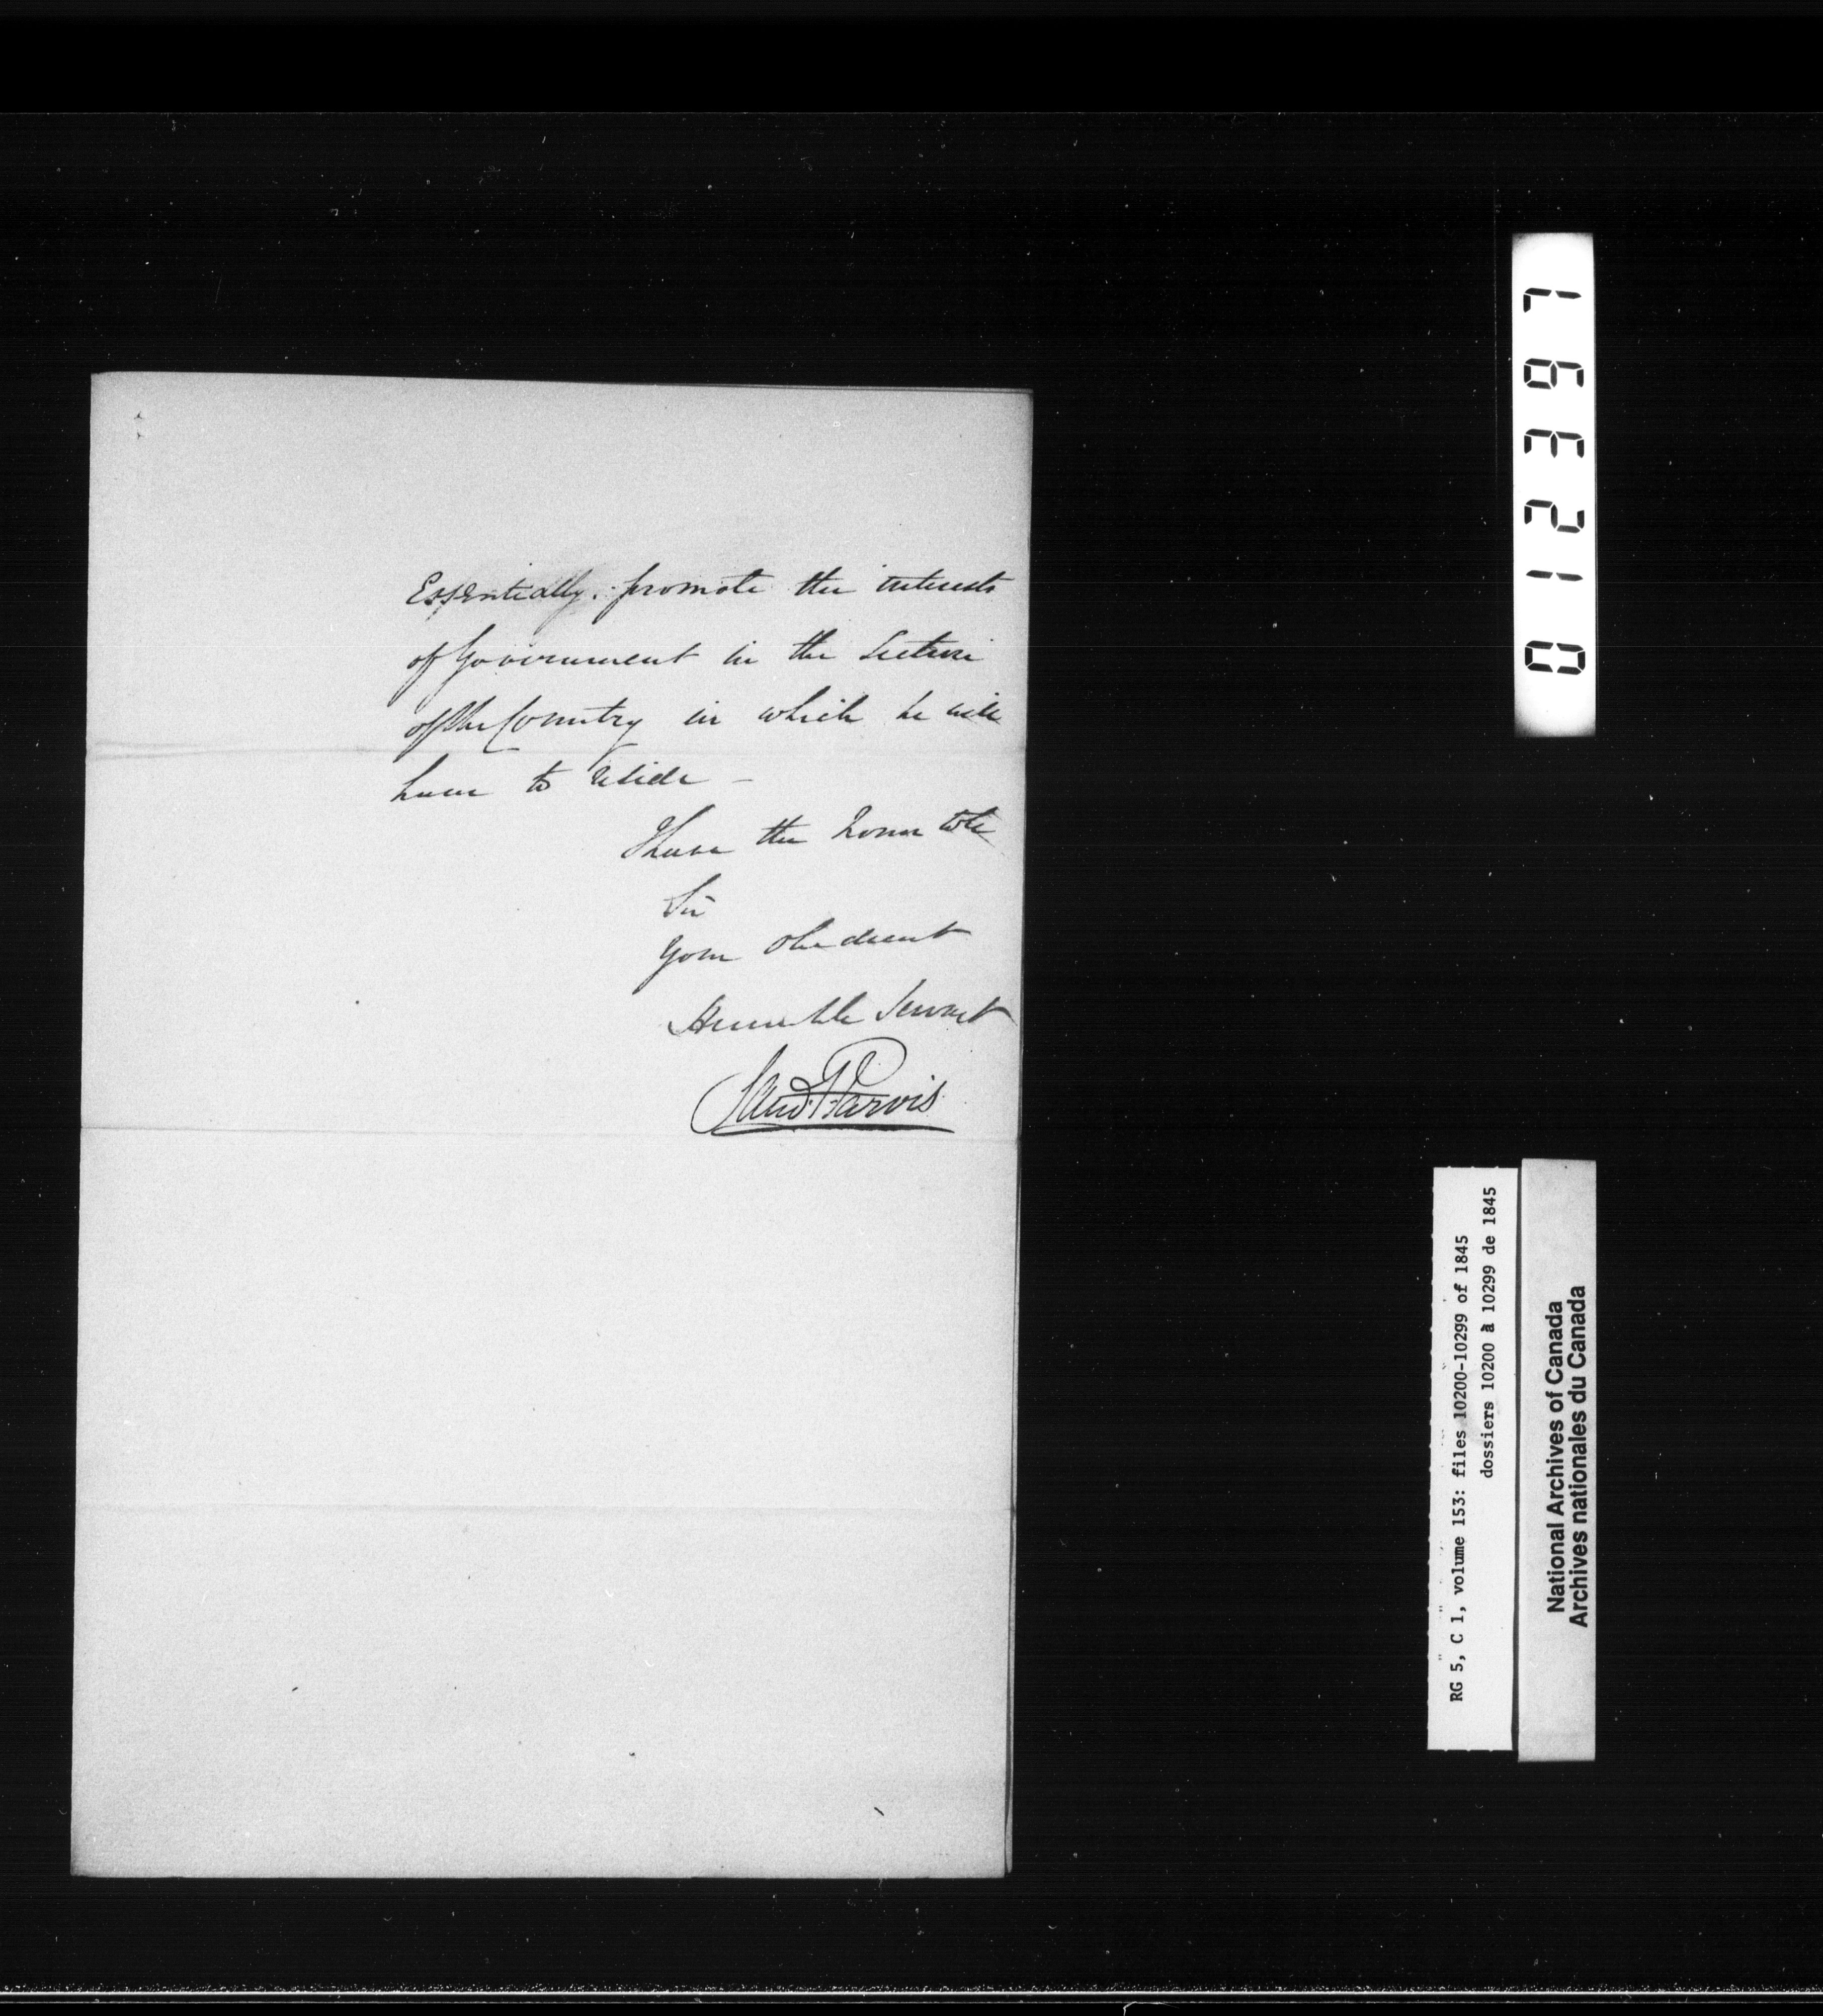 Essentially promote the interests
of Government in the Section
of the Country in which he will
have to reside —
I have the honor to be
Sir
Your obedient
Humble Servant
Jarvis
012397
RG 5, C 1, volume 153: files 10200-10299 of 1845
dossiers 10200 à 10299 de 1845
National Archives of Canada
Archives nationales du Canada